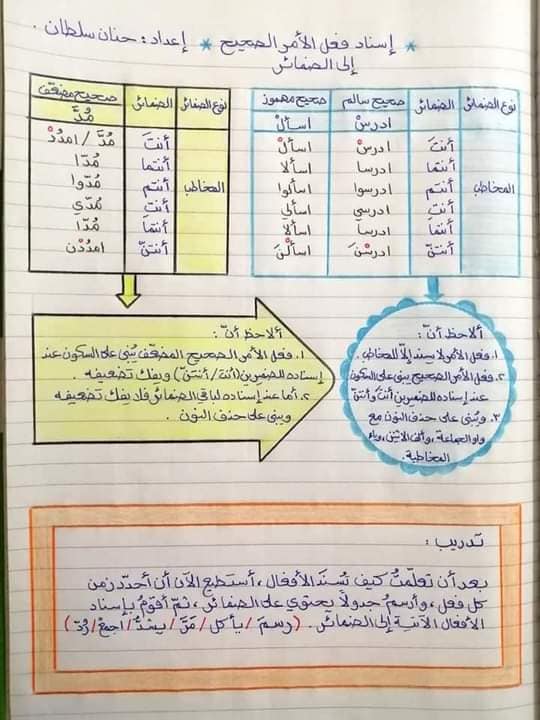 * إسناد فعل الأمر الصحيح * إعداد : حنان سلطان .
إلى الضمائر
نوع الضمائر الضمائر صحيح سالم صحيح مهموز
ادرسْ اسألْ
أنتَ ادرسْ اسألْ
أنتما ادرسا اسألا
المخاطب أنتم ادرسوا اسألوا
أنتِ ادرسي اسألي
أنتما ادرسا اسألا
أنتنّ ادرسْنَ اسألْنَ
نوع الضمائر الضمائر صحيح مضعّف
مُدَّ
أنتَ مُدَّ / امدُدْ
أنتما مُدّا
المخاطب أنتم مُدّوا
أنتِ مُدّي
أنتما مُدّا
أنتنّ امدُدْن
ألاحظ أنّ :
١. فعل الأمر لا يسند إلّا للمخاطب .
٢. فعل الأمر الصحيح يبنى على السكون
عند إسناده للضميرين أنتَ وأنتنّ
٣. ويُبنى على حذف النون مع
واو الجماعة ، وألف الاثنين ، وياء
المخاطبة.
ألاحظ أنّ :
١. فعل الأمر الصحيح المضعّف يُبنى على السكون عند
إسناده للضميرين (أنتَ / أنتنّ) ويفك تضعيفه .
٢. أما عند إسناده لباقي الضمائر فلا يفك تضعيفه
ويبنى على حذف النون .
تدريب :
بعد أن تعلّمتُ كيف تُسنَدَ الأفعال ، أستطيع الآن أن أحدّد زمن
كل فعل ، وأرسمُ جدولًا يحتوي على الضمائر ، ثمّ أقوّمُ بإسناد
الأفعال الآتية إلى الضمائر . ( رسمَ / يأكل / مَرَّ / يشدُّ / اجمعْ / رُدّ )